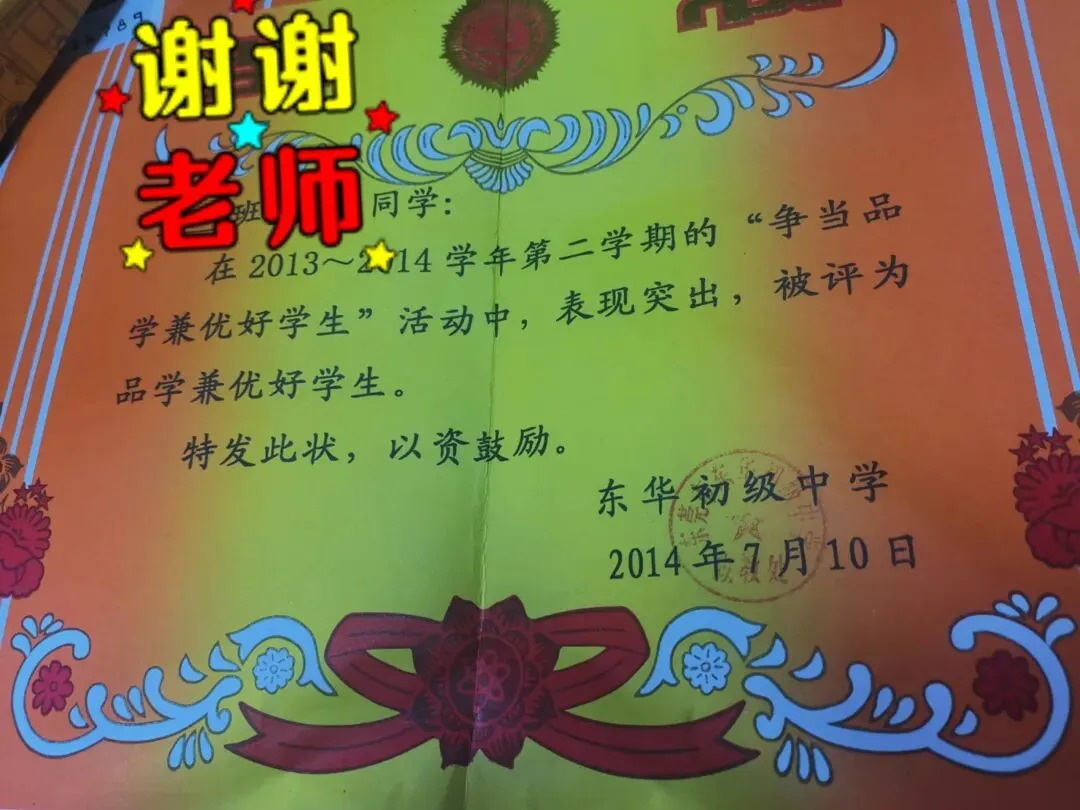 谢谢
老师
班 同学:
在2013~2014学年第二学期的“争当品
学兼优好学生”活动中,表现突出,被评为
品学兼优好学生。
特发此状,以资鼓励。
东华初级中学
2014年7月10日